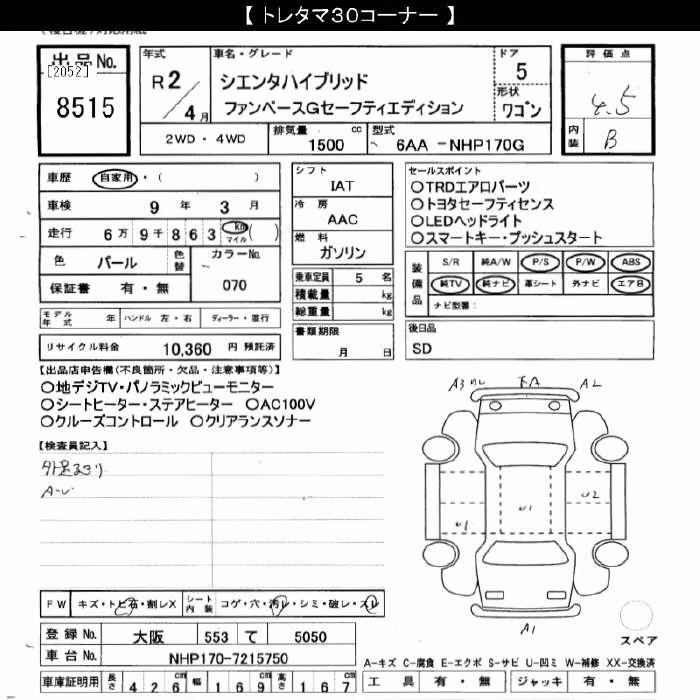 【 トレタマ30コーナー 】
出品No.
[2052]
8515
年式
R2/4月
車名・グレード
シエンタハイブリッド
ファンベースGセーフティエディション
ドア
5
形状
ワゴン
2WD・4WD
排気量
1500 cc
型式
6AA -NHP170G
評価点
4.5
内装
B
車歴 自家用・( )
車検 9 年 3 月
走行 6万9千863 km マイル ( )
色 パール 色替 カラーNo.
保証書 有・無 070
モデル年式 年 ハンドル 左・右 ディーラー・並行
リサイクル料金 10,360 円 預託済
シフト
IAT
冷房
AAC
燃料
ガソリン
乗車定員 5 名
積載量 kg
総重量 kg
書類期限
月 日
セールスポイント
○TRDエアロパーツ
○トヨタセーフティセンス
○LEDヘッドライト
○スマートキー・プッシュスタート
装備品
S/R 純A/W P/S P/W ABS
純TV 純ナビ 革シート 外ナビ エアB
ナビ型番:
後日品
SD
【出品店申告欄(不良箇所・欠品・注意事項等)】
○地デジTV・パノラミックビューモニター
○シートヒーター・ステアヒーター ○AC100V
○クルーズコントロール ○クリアランスソナー
【検査員記入】
A-U
A2
U2
U1
U1
A1
スペア
FW キズ・トビ石・割レX シート内装 コゲ・穴・汚レ・シミ・破レ・スレ
登録No. 大阪 553 て 5050
車台No. NHP170-7215750
車庫証明用 長さ 426 cm 幅 169 cm 高さ 167 cm
A-キズ C-腐食 E-エクボ S-サビ U-凹ミ W-補修 XX-交換済
工具 有・無 ジャッキ 有・無